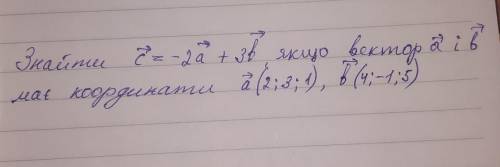 Знайти c⃗ = -2a⃗ + 3b⃗, якщо вектор a⃗ і b⃗
має координати a⃗ (2; 3; 1), b⃗ (4; -1; 5)